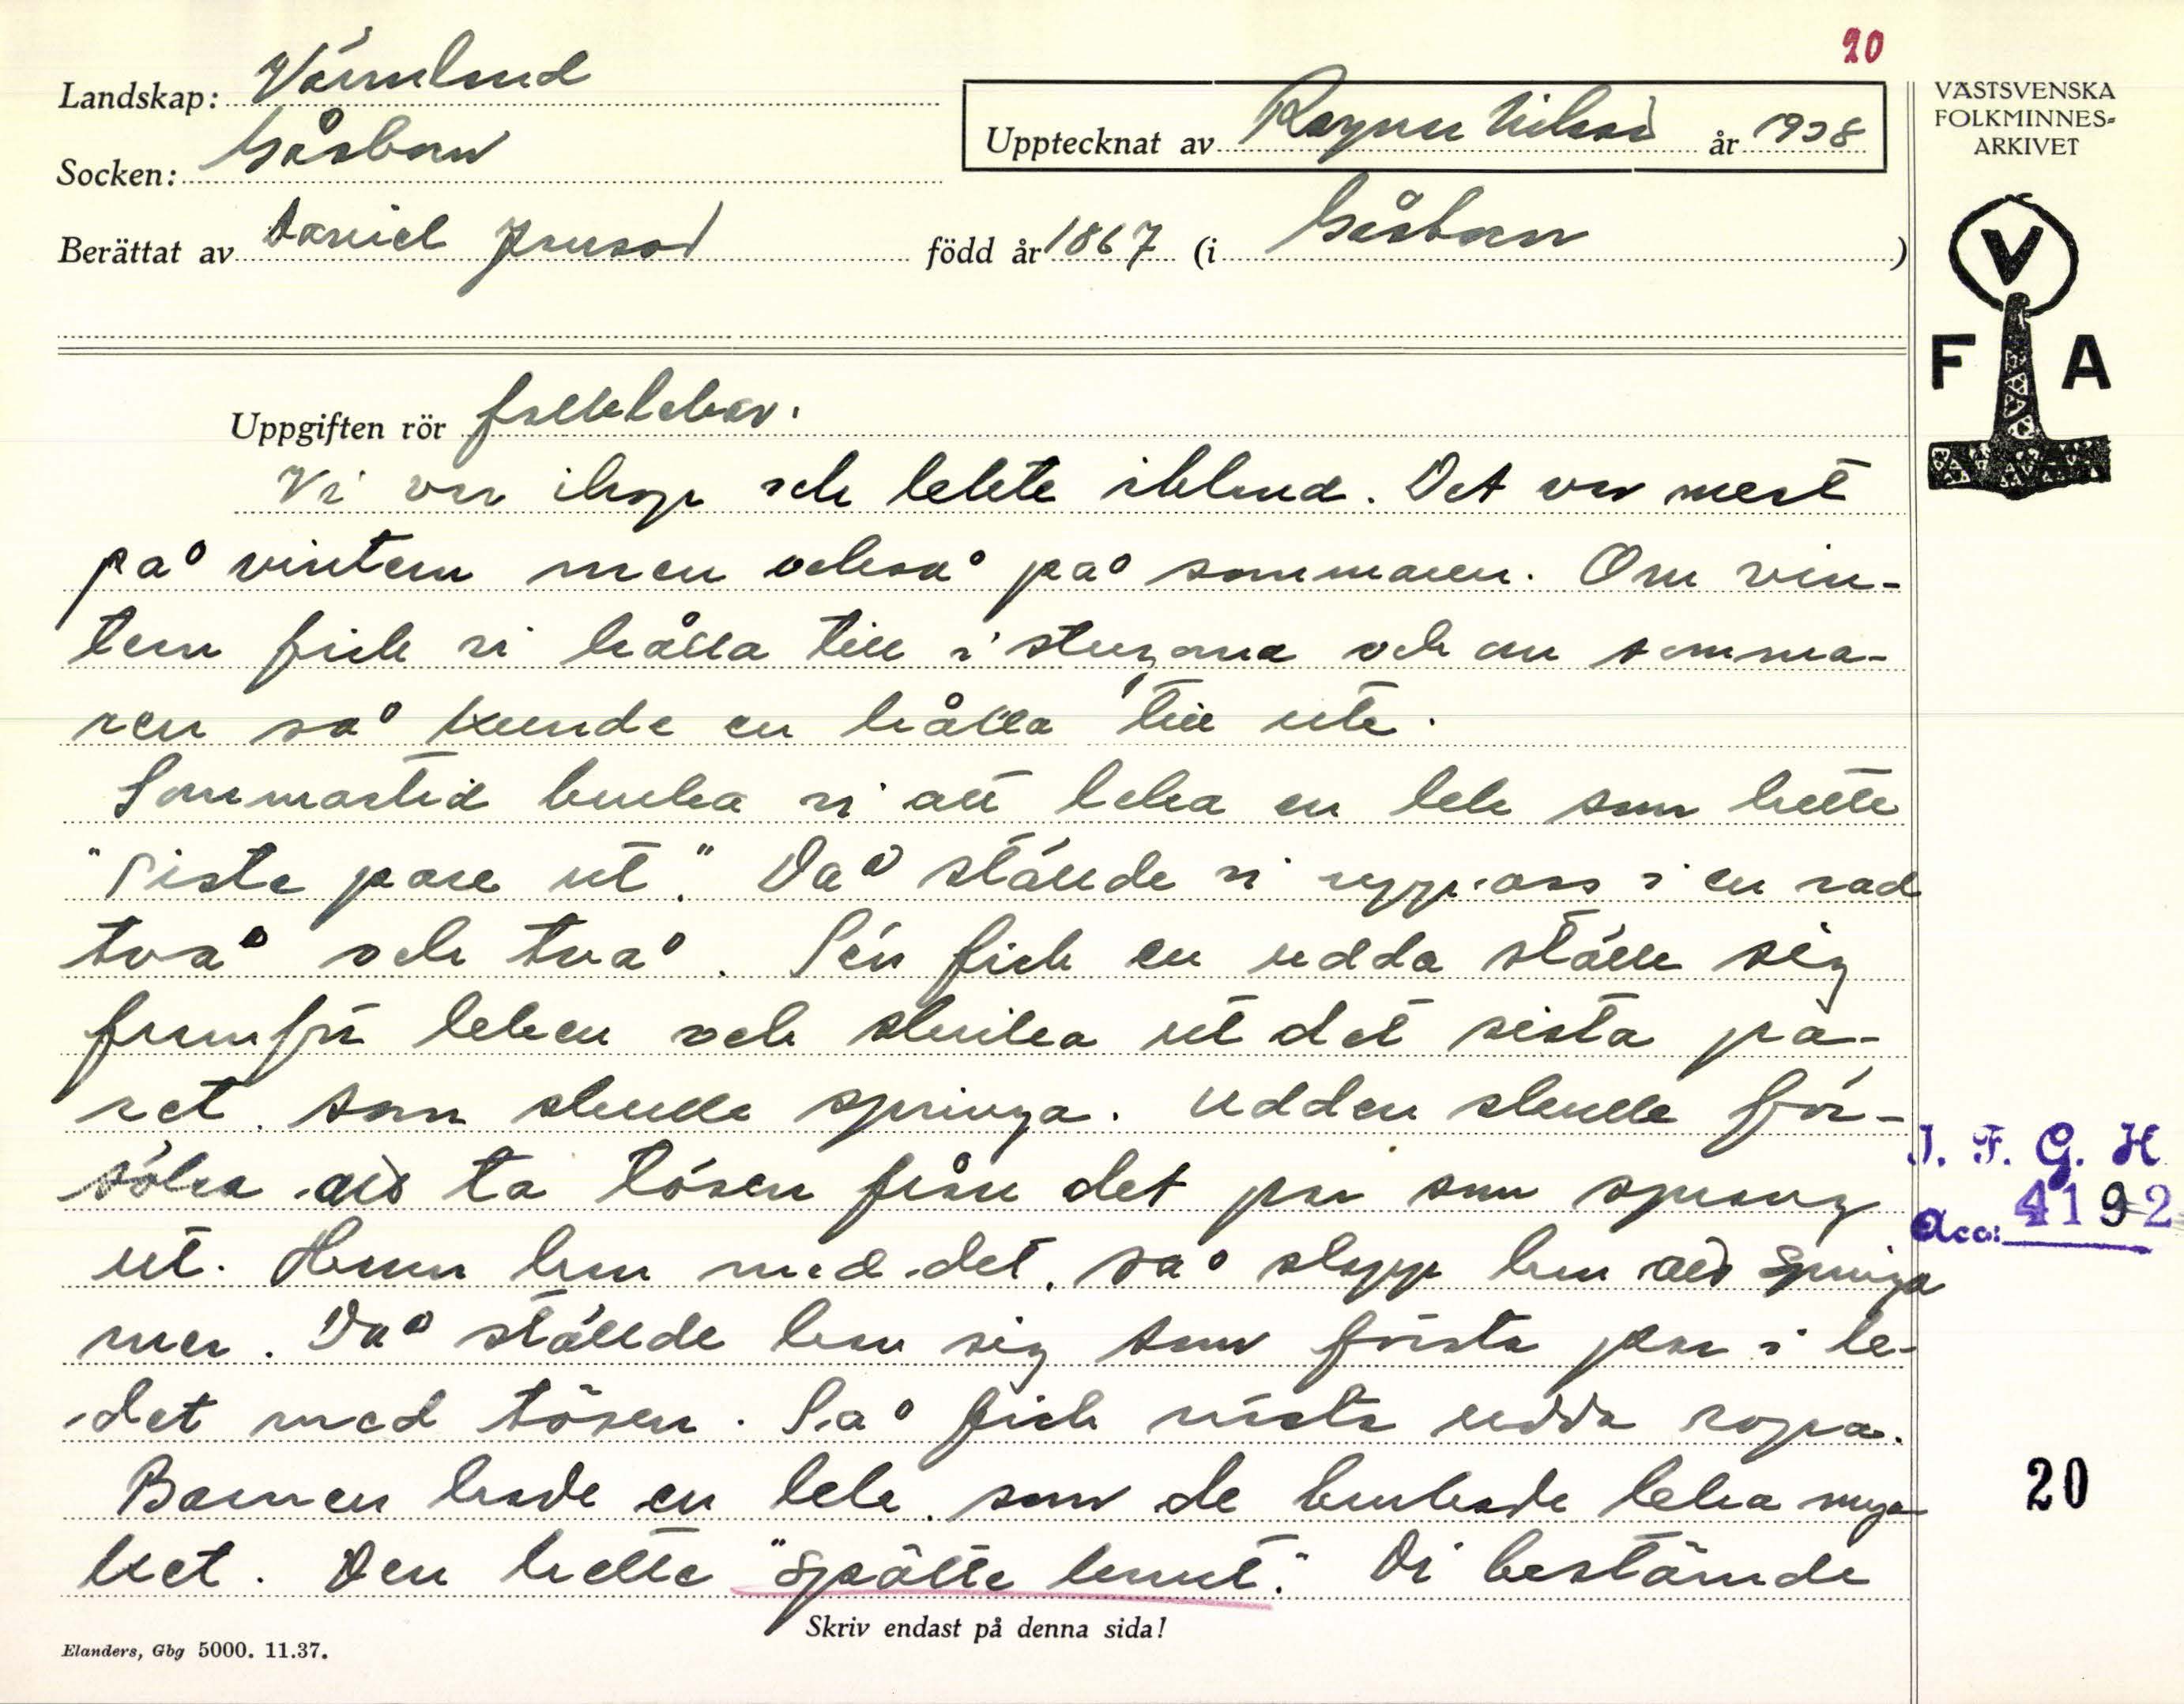 20
Landskap: Värmland
Upptecknat av Ragnar Nilsson år 1938
VÄSTSVENSKA
FOLKMINNES-
ARKIVET
Socken: Gåsborn
Berättat av Daniel Jansson född år 1867 (i Gåsborn)
V
F A
Uppgiften rör folklekar.
Vi var ihop och lekte ibland. Det var mest
på vintern men också på sommaren. Om vin-
tern fick vi hålla till i stugorna och om somma-
ren så kunde en hålla till ute.
Sommartid bruka vi att leka en lek som hette
"Sista paret ut." Då ställde vi upp oss i en rad
två och två. Sen fick en udda ställe sig
framför leken och skrika ut det sista pa-
ret som skulle springa. Udden skulle för-
söka att ta tösen från det par som sprang
ut. Hann han med det, så slapp han att springa
mer. Då ställde han sig som första par i le-
det med tösen. Så fick nästa udda ropa.
Barnen hade en lek som de brukade leka myc-
ket. Den hette "Spätte knut." Di bestämde
J. F. G. H
Acc: 4192
20
Skriv endast på denna sida!
Elanders, Gbg 5000. 11.37.